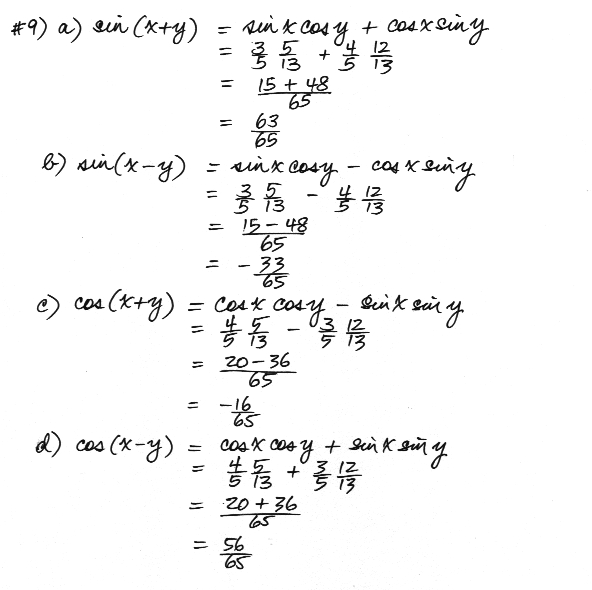 #9) a) sin (x+y) = sin x cos y + cos x sin y
= 3/5 5/13 + 4/5 12/13
= (15 + 48)/65
= 63/65
b) sin(x-y) = sin x cos y - cos x sin y
= 3/5 5/13 - 4/5 12/13
= (15 - 48)/65
= -33/65
c) cos(x+y) = cos x cos y - sin x sin y
= 4/5 5/13 - 3/5 12/13
= (20-36)/65
= -16/65
d) cos (x-y) = cos x cos y + sin x sin y
= 4/5 5/13 + 3/5 12/13
= (20+36)/65
= 56/65